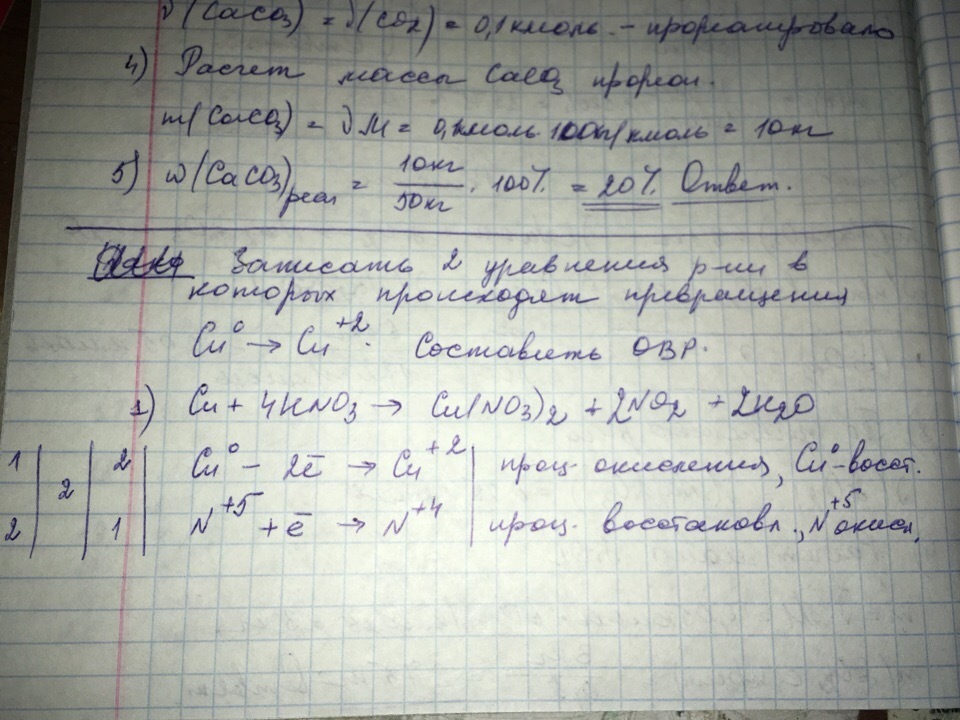 ν(CaCO3) = ν(CO2) = 0,1 кмоль - прореагировало
4) Расчет массы CaCO3 прореаг.
m(CaCO3) = νM = 0,1кмоль·100кг/кмоль = 10кг
5) ω(CaCO3)реаг = 10кг/50кг · 100% = 20% Ответ.
Записать 2 уравнения р-ии в
которых происходят превращения
Cu⁰ → Cu⁺². Составить ОВР.
1) Cu + 4HNO3 → Cu(NO3)2 + 2NO2 + 2H2O
1 | 2 | 2 | Cu⁰ - 2ē → Cu⁺² | проц. окисления, Cu⁰-восст.
2 | | 1 | N⁺⁵ + ē → N⁺⁴ | проц. восстановл., N⁺⁵ окисл.